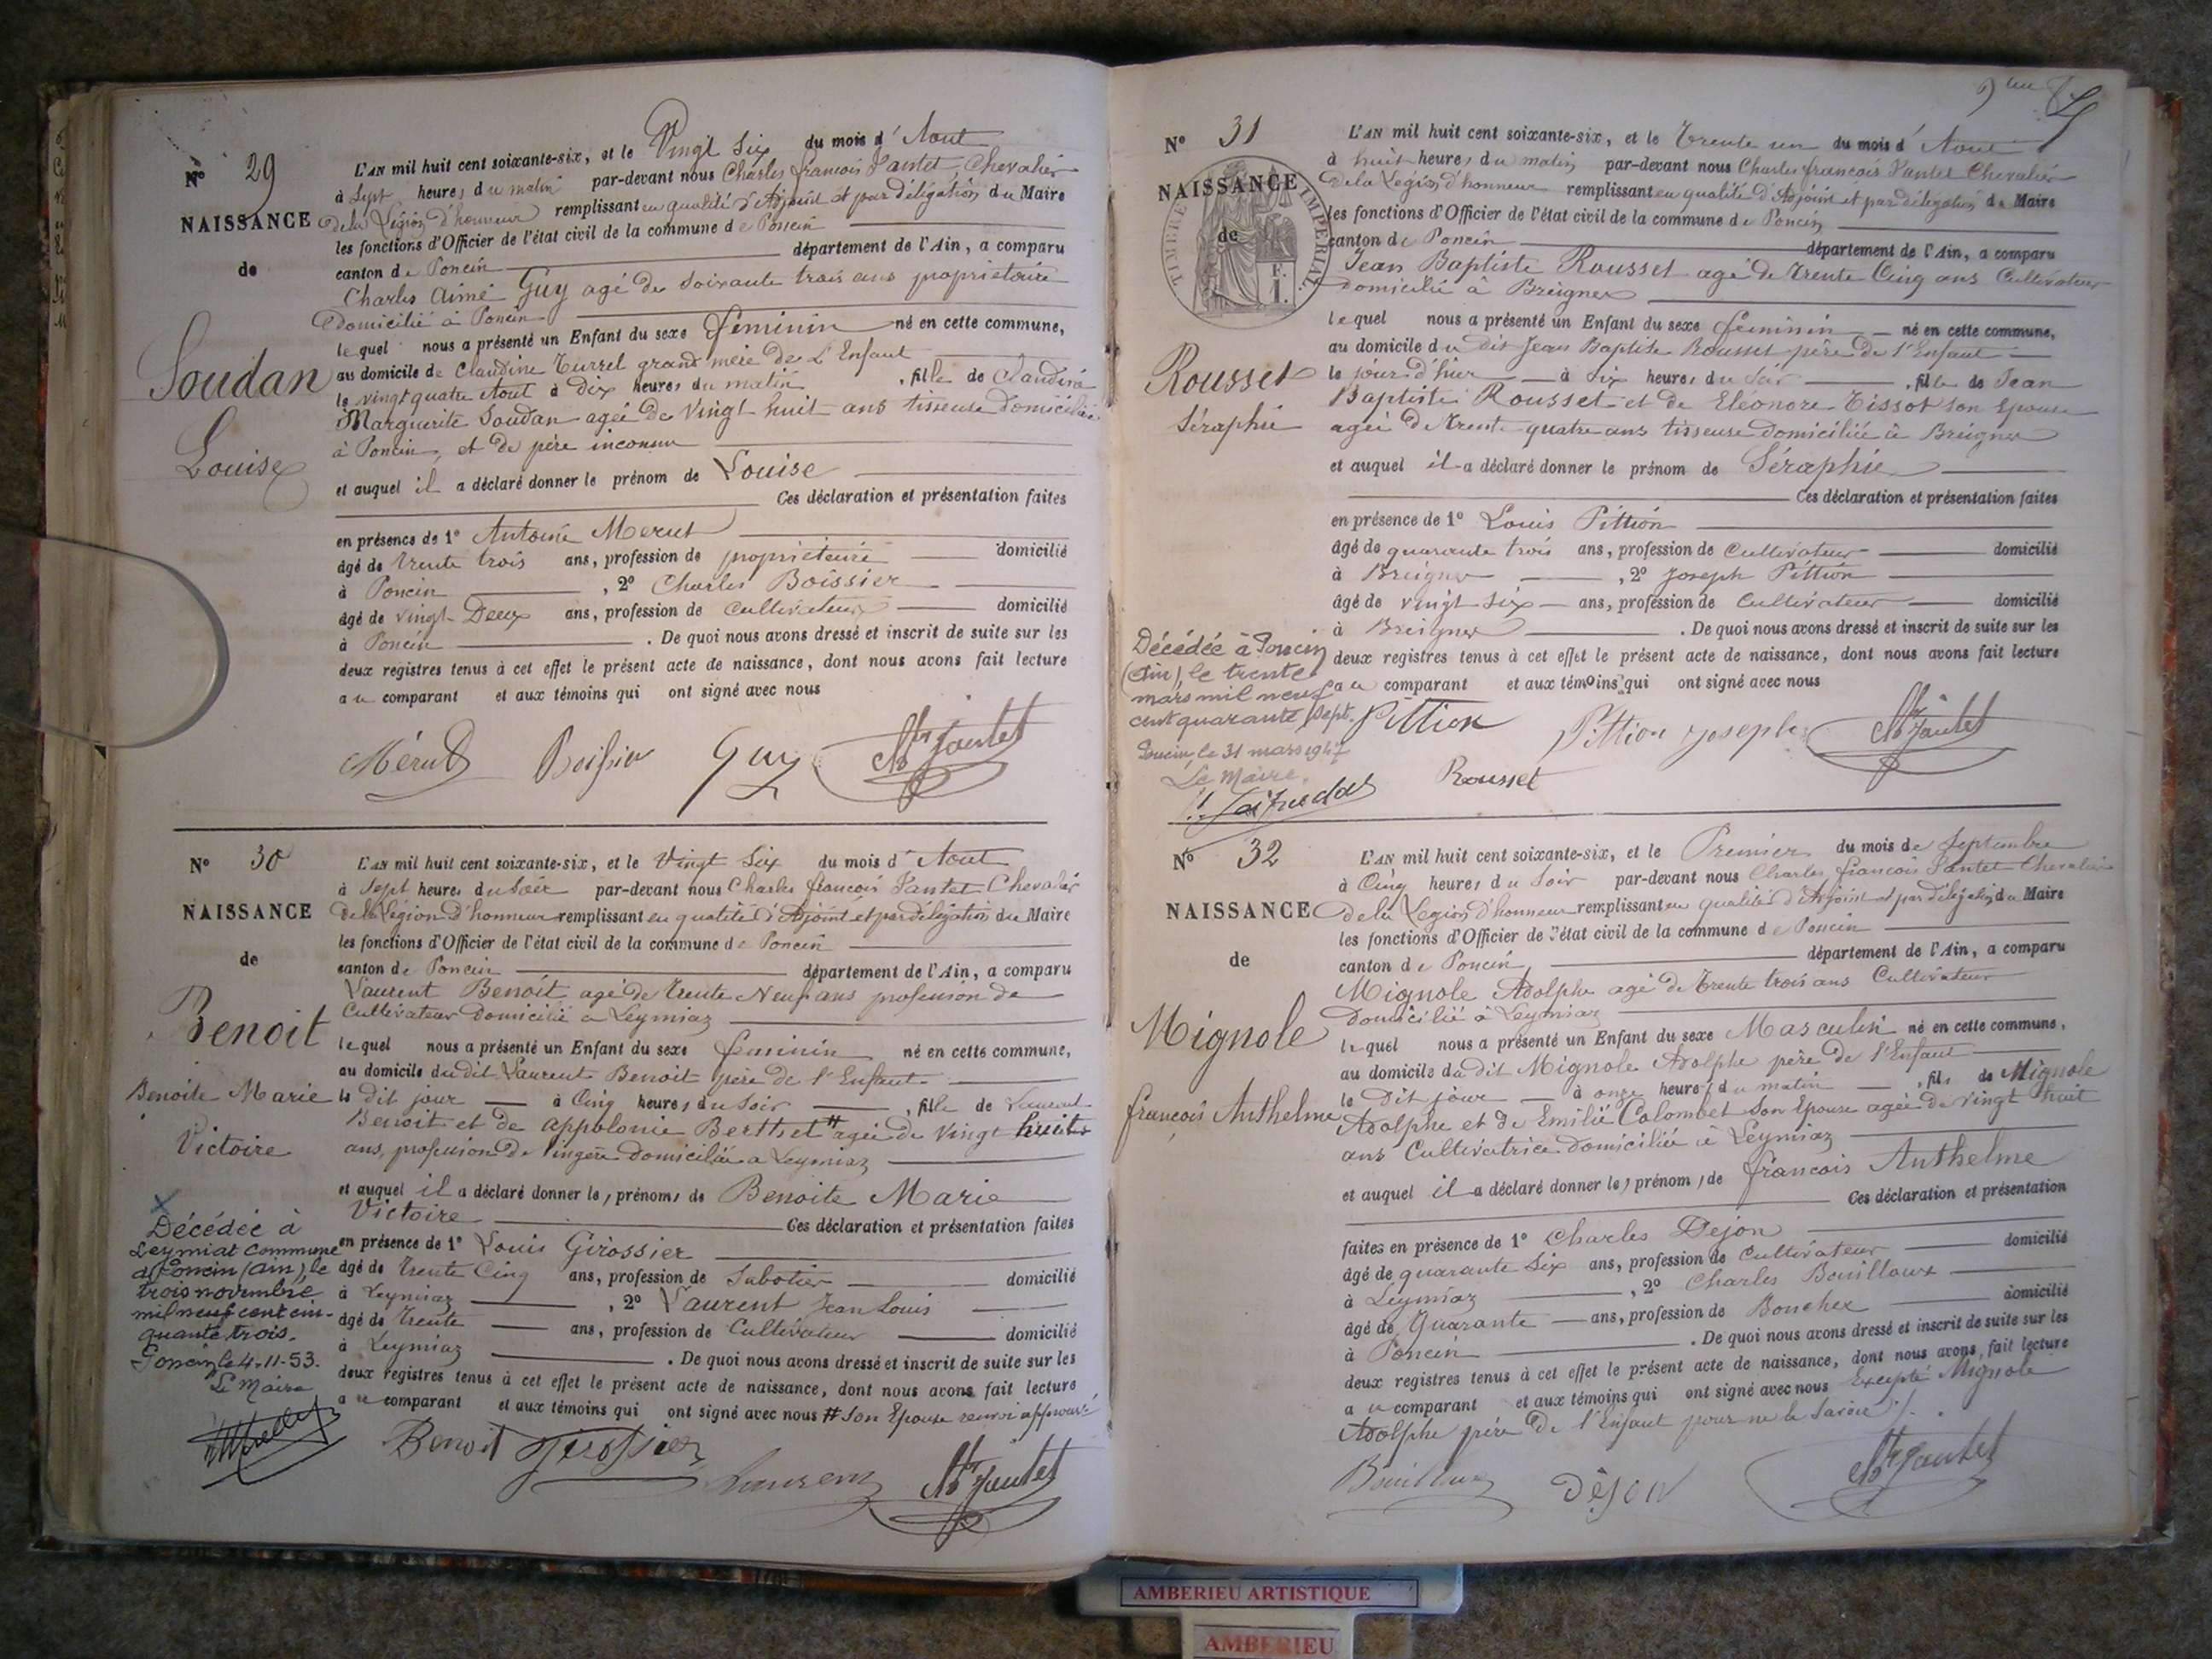 Nº 29
NAISSANCE
de
Soudan
Louise
L'AN mil huit cent soixante-six, et le Vingt Six du mois d'Aout
à Sept heures du matin par-devant nous Charles francois Jantet, Chevalier
de la Légion d'honneur remplissant en qualité d'Adjoint et par délégation du Maire
les fonctions d'Officier de l'état civil de la commune de Poncin
canton de Poncin département de l'Ain, a comparu
Charles Aimé Guy agé de soixante trois ans propriétaire
Domicilié à Poncin
lequel nous a présenté un Enfant du sexe féminin né en cette commune,
au domicile de Claudine Turrel grand mère de L'Enfant
le vingt quatre Aout à Dix heures du matin, fille de Claudine
Marguerite Soudan agée de Vingt huit ans tisseuse domiciliée
à Poncin, et de père inconnu
et auquel il a déclaré donner le prénom de Louise
Ces déclaration et présentation faites
en présence de 1º Antoine Merut
âgé de trente trois ans, profession de propriétaire domicilié
à Poncin, 2º Charles Boissier
âgé de vingt Deux ans, profession de Cultivateur domicilié
à Poncin. De quoi nous avons dressé et inscrit de suite sur les
deux registres tenus à cet effet le présent acte de naissance, dont nous avons fait lecture
au comparant et aux témoins qui ont signé avec nous
Mérut Boissier Guy Jantet
Nº 30
NAISSANCE
de
Benoit
Benoite Marie
Victoire
L'AN mil huit cent soixante-six, et le Vingt Six du mois d'Aout
à Sept heures du Soir par-devant nous Charles francois Jantet Chevalier
de la Légion d'honneur remplissant en qualité d'Adjoint et par délégation du Maire
les fonctions d'Officier de l'état civil de la commune de Poncin
canton de Poncin département de l'Ain, a comparu
Laurent Benoit agé de trente Neuf ans profession de
Cultivateur Domicilié à Leymiaz
lequel nous a présenté un Enfant du sexe féminin né en cette commune,
au domicile du dit Laurent Benoit père de l'Enfant
le dit jour à Cinq heures du Soir, fille de Laurent
Benoit et de appolonie Berthet # agée de Vingt huit
ans, profession de lingère domiciliée a Leymiaz
et auquel il a déclaré donner les prénoms de Benoite Marie
Victoire Ces déclaration et présentation faites
en présence de 1º Louis Girossier
âgé de trente Cinq ans, profession de Sabotier domicilié
à Leymiaz, 2º Laurent Jean Louis
âgé de trente ans, profession de Cultivateur domicilié
à Leymiaz. De quoi nous avons dressé et inscrit de suite sur les
deux registres tenus à cet effet le présent acte de naissance, dont nous avons fait lecture
au comparant et aux témoins qui ont signé avec nous # Son Epouse renvoi approuvé
Décédée à
Leymiat commune
de Poncin (Ain), le
trois novembre
mil neuf cent cin-
quante trois.
Poncin le 4-11-53.
Le Maire
Benoit Girossier Laurent Jantet
Nº 31
NAISSANCE
de
TIMBRE IMPERIAL
F.
1.
Rousset
Séraphie
L'AN mil huit cent soixante-six, et le Trente un du mois d'Aout
à huit heures du matin par-devant nous Charles francois Jantet Chevalier
de la Légion d'honneur remplissant en qualité d'Adjoint et par délégation du Maire
les fonctions d'Officier de l'état civil de la commune de Poncin
canton de Poncin département de l'Ain, a comparu
Jean Baptiste Rousset agé de trente Cinq ans Cultivateur
domicilié à Breignes
lequel nous a présenté un Enfant du sexe féminin né en cette commune,
au domicile du dit Jean Baptiste Rousset père de l'Enfant
le jour d'hier à Six heures du Soir, fille de Jean
Baptiste Rousset et de Eléonore Tissot son Epouse
agée de trente quatre ans tisseuse domiciliée à Breignes
et auquel il a déclaré donner le prénom de Séraphie
Ces déclaration et présentation faites
en présence de 1º Louis Pittion
âgé de quarante trois ans, profession de Cultivateur domicilié
à Breignes, 2º Joseph Pittion
âgé de vingt Six ans, profession de Cultivateur domicilié
à Breignes. De quoi nous avons dressé et inscrit de suite sur les
deux registres tenus à cet effet le présent acte de naissance, dont nous avons fait lecture
au comparant et aux témoins qui ont signé avec nous
Décédée à Poncin
(Ain), le trente
mars mil neuf
cent quarante sept.
Poncin, le 31 mars 1947
Le Maire,
Pittion Pittion joseph Jantet
Rousset
Nº 32
NAISSANCE
de
Mignole
françois Anthelme
L'AN mil huit cent soixante-six, et le Premier du mois de Septembre
à Cinq heures du Soir par-devant nous Charles francois Jantet Chevalier
de la Légion d'honneur remplissant en qualité d'Adjoint et par délégation du Maire
les fonctions d'Officier de l'état civil de la commune de Poncin
canton de Poncin département de l'Ain, a comparu
Mignole Adolphe agé de trente trois ans Cultivateur
Domicilié à Leymiaz
lequel nous a présenté un Enfant du sexe Masculin né en cette commune,
au domicile du dit Mignole Adolphe père de l'Enfant
le Dit jour à onze heures du matin, fils de Mignole
Adolphe et de Emilie Colombet Son Epouse agée de vingt huit
ans Cultivatrice domiciliée à Leymiaz
et auquel il a déclaré donner les prénoms de francois Anthelme
Ces déclaration et présentation
faites en présence de 1º Charles Dejon
âgé de quarante Six ans, profession de Cultivateur domicilié
à Leymiaz, 2º Charles Bouilloux
âgé de Quarante ans, profession de Boucher domicilié
à Poncin. De quoi nous avons dressé et inscrit de suite sur les
deux registres tenus à cet effet le présent acte de naissance, dont nous avons fait lecture
au comparant et aux témoins qui ont signé avec nous Excepté Mignole
Adolphe père de l'Enfant pour ne le Savoir
Bouilloux Dejon Jantet
AMBERIEU ARTISTIQUE
AMBERIEU